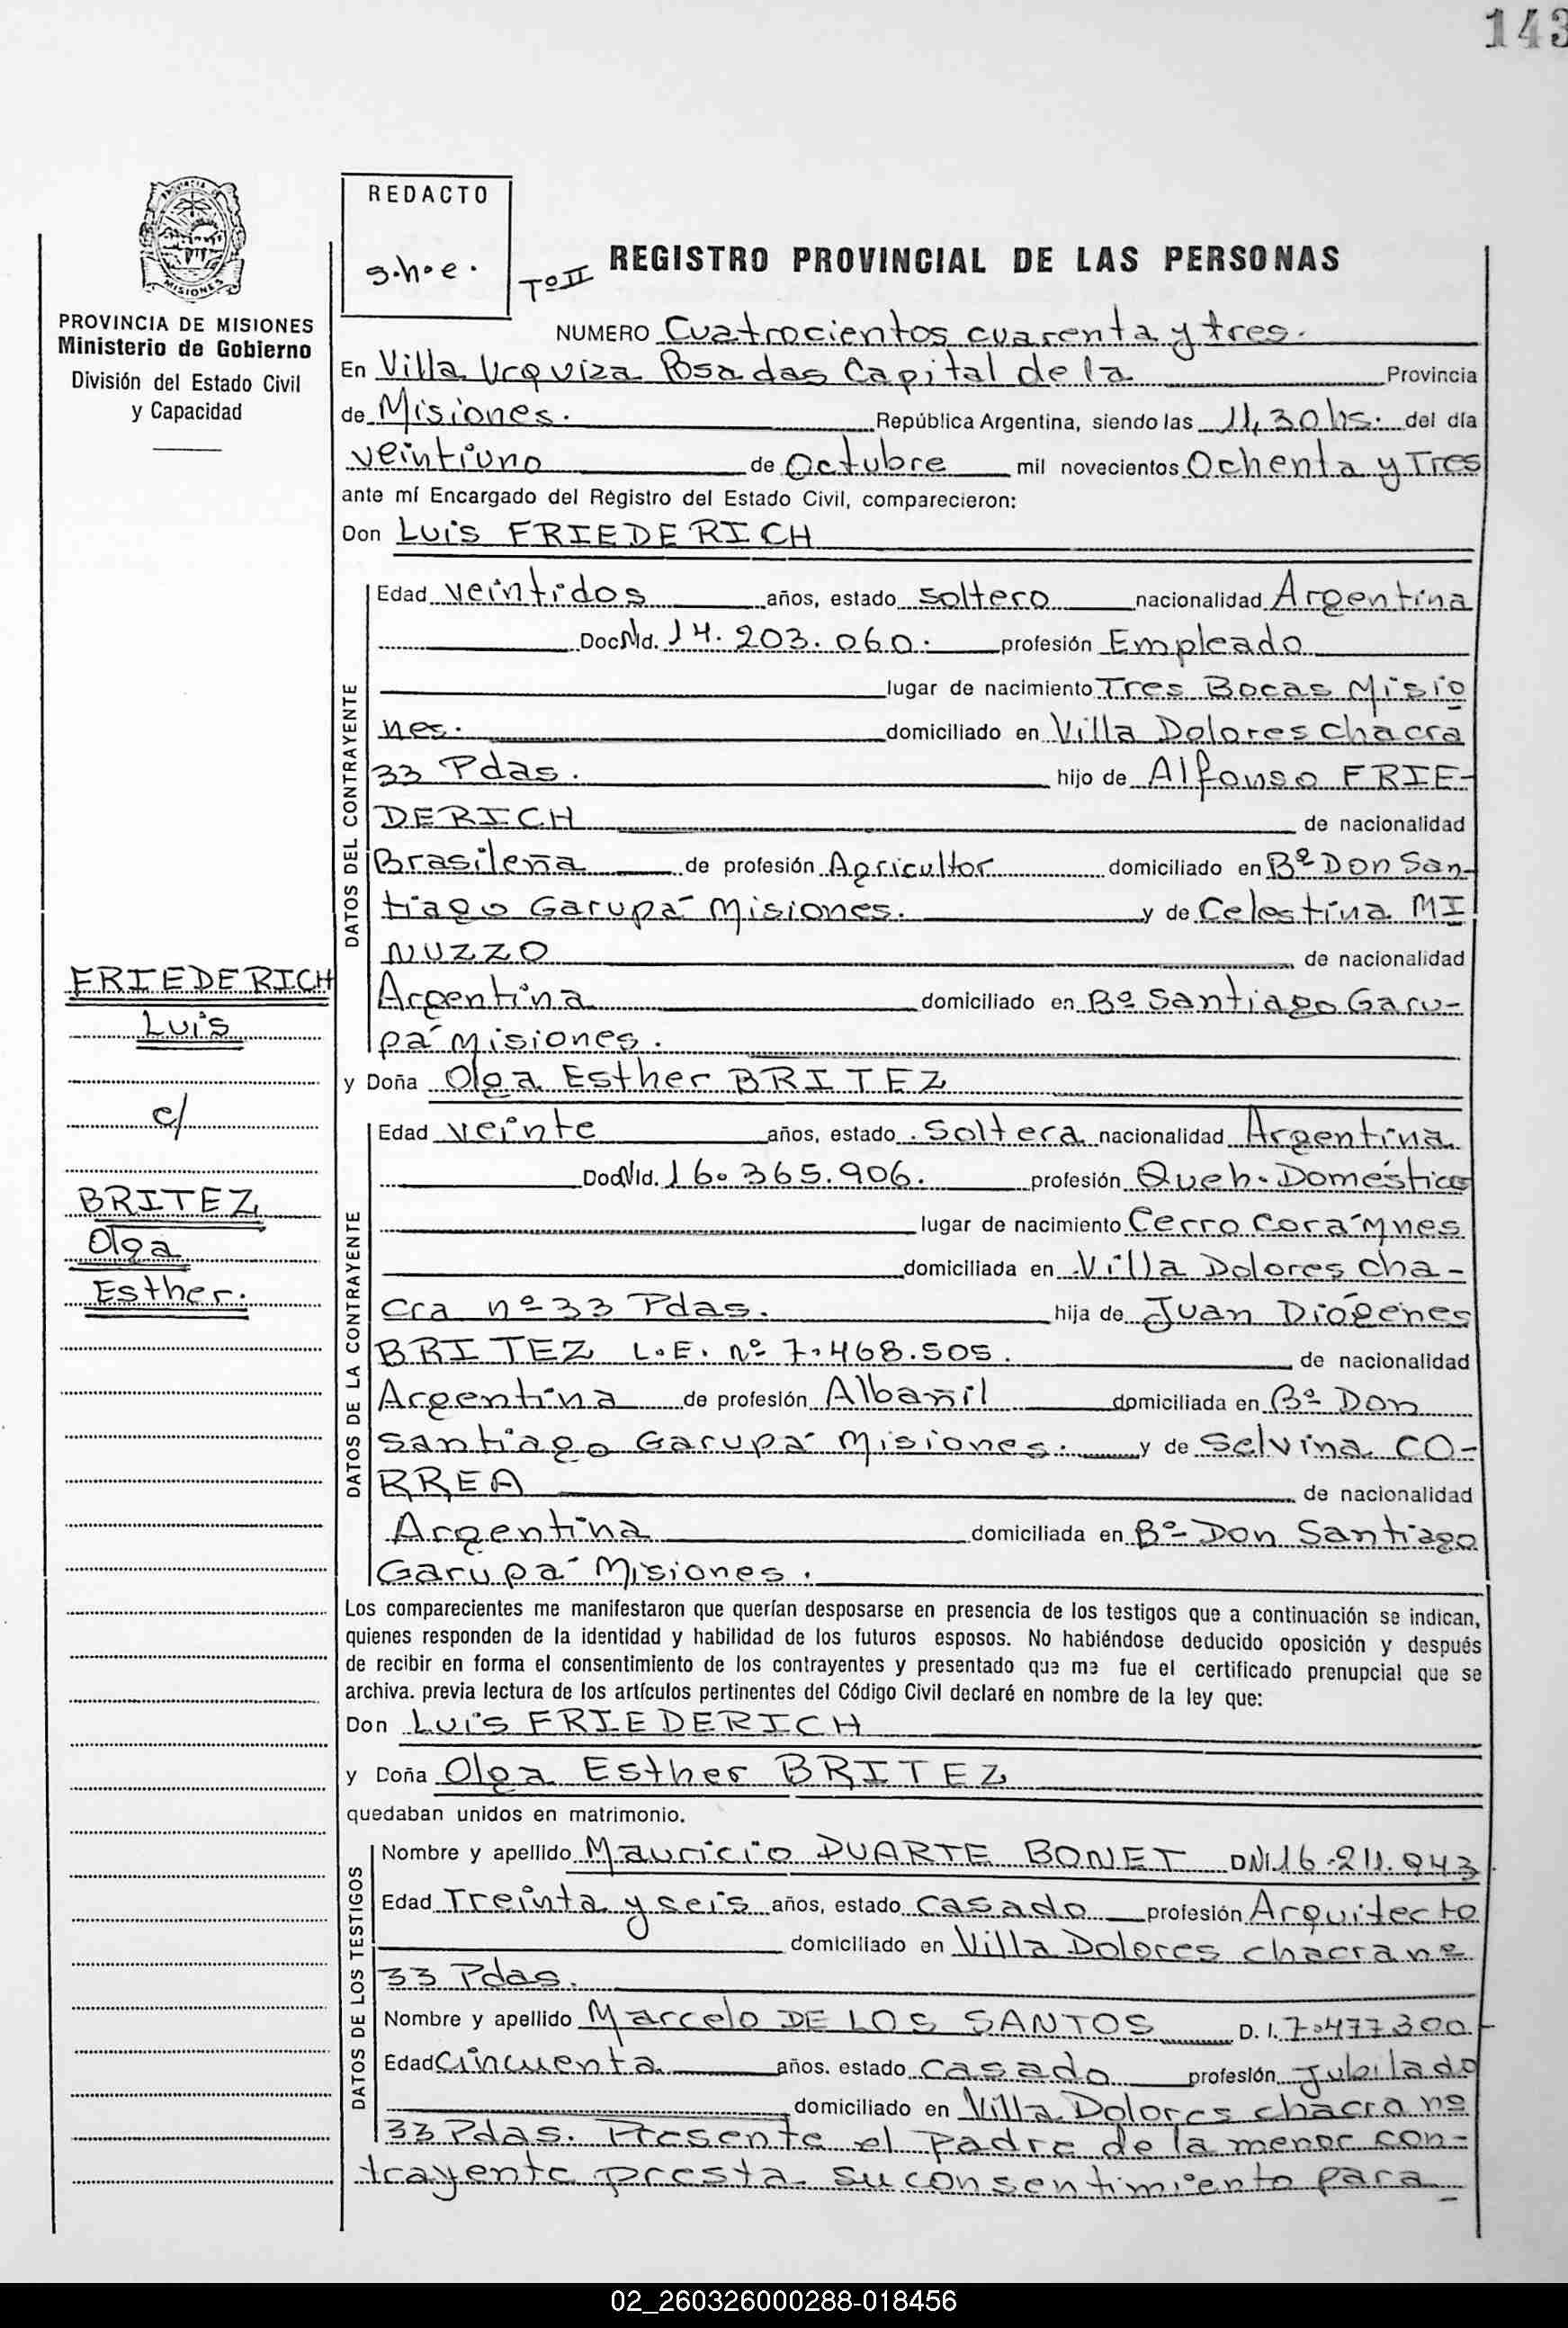 143
REDACTO
s.h.e.
Tº II
REGISTRO PROVINCIAL DE LAS PERSONAS
PROVINCIA DE MISIONES
Ministerio de Gobierno
División del Estado Civil
y Capacidad
NUMERO Cuatrocientos cuarenta y tres.
En Villa Urquiza Posadas Capital de la Provincia
de Misiones. República Argentina, siendo las 11,30 hs. del día
veintiuno de Octubre mil novecientos Ochenta y Tres
ante mí Encargado del Registro del Estado Civil, comparecieron:
Don Luis FRIEDERICH
DATOS DEL CONTRAYENTE
Edad veintidos años, estado soltero nacionalidad Argentina
Doc Nº Id. 14.203.060. profesión Empleado
lugar de nacimiento Tres Bocas Misio
nes. domiciliado en Villa Dolores Chacra
33 Pdas. hijo de Alfonso FRIE-
DERICH de nacionalidad
Brasileña de profesión Agricultor domiciliado en Bº Don San-
tiago Garupá Misiones. y de Celestina MI
NUZZO de nacionalidad
Argentina domiciliado en Bº Santiago Garu-
pá Misiones.
y Doña Olga Esther BRITEZ
FRIEDERICH
Luis
c/
BRITEZ
Olga
Esther.
DATOS DE LA CONTRAYENTE
Edad veinte años, estado Soltera nacionalidad Argentina
Doc Nº Id. 16.365.906. profesión Queh. Domésticos
lugar de nacimiento Cerro Corá Mnes
domiciliada en Villa Dolores cha-
cra nº 33 Pdas. hija de Juan Diógenes
BRITEZ L.E. nº 7.468.505. de nacionalidad
Argentina de profesión Albañil domiciliada en Bº Don
Santiago Garupá Misiones. y de Selvina CO-
RREA de nacionalidad
Argentina domiciliada en Bº Don Santiago
Garupá Misiones.
Los comparecientes me manifestaron que querían desposarse en presencia de los testigos que a continuación se indican,
quienes responden de la identidad y habilidad de los futuros esposos. No habiéndose deducido oposición y después
de recibir en forma el consentimiento de los contrayentes y presentado que me fue el certificado prenupcial que se
archiva. previa lectura de los artículos pertinentes del Código Civil declaré en nombre de la ley que:
Don Luis FRIEDERICH
y Doña Olga Esther BRITEZ
quedaban unidos en matrimonio.
DATOS DE LOS TESTIGOS
Nombre y apellido Mauricio DUARTE BONET DNI 16.211.943
Edad Treinta y seis años, estado casado profesión Arquitecto
domiciliado en Villa Dolores chacra nº
33 Pdas.
Nombre y apellido Marcelo DE LOS SANTOS D. I. 7.477.300
Edad cincuenta años. estado casado profesión Jubilado
domiciliado en Villa Dolores chacra nº
33 Pdas. Presente el padre de la menor con-
trayente presta su consentimiento para
02_260326000288-018456